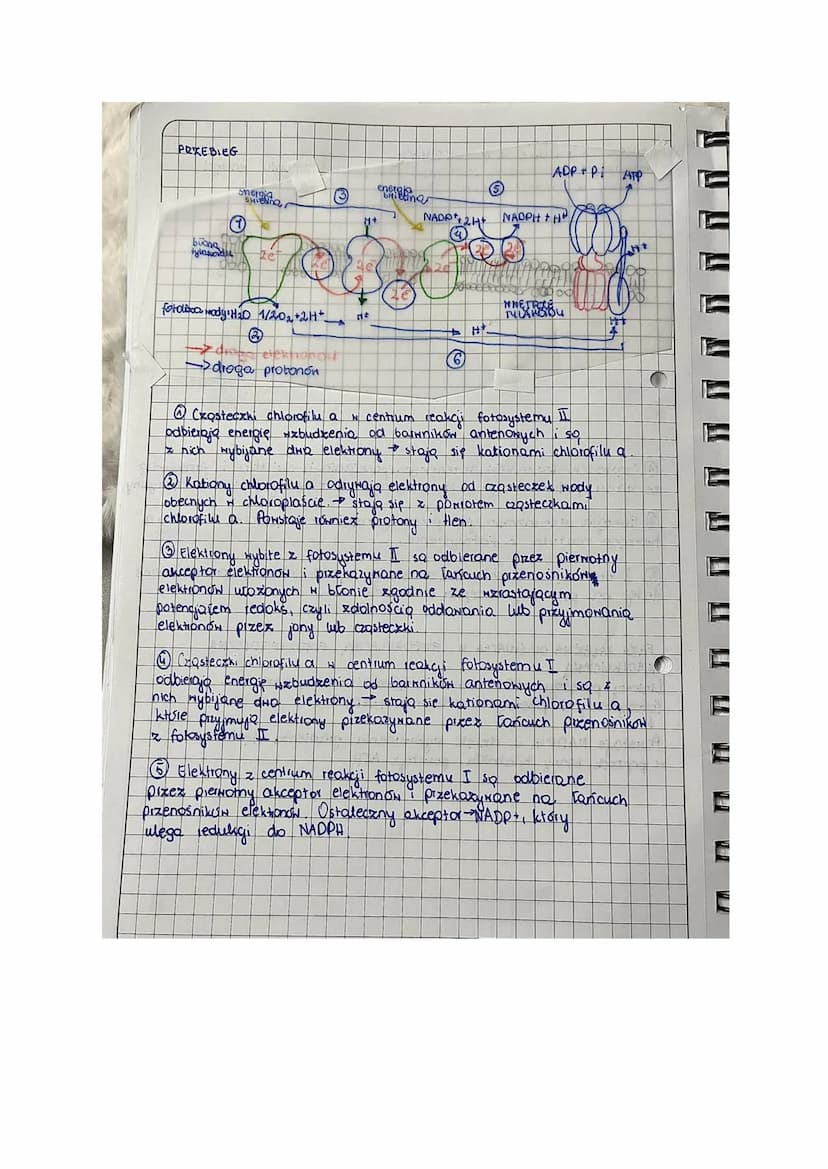 PRZEBIEG
ADP + Pi ATP
energia świetlna ③ energia świetlna ⑤
① H+ NADP+ + 2H+ NADPH + H+
błona tylakoidu 2e⁻ 2e⁻ 2e⁻ 2e⁻ 2e⁻ ④ 2e⁻ 2e⁻ H+
fotoliza wody: H₂O 1/2O₂ + 2H+ → H+ → H+ WNĘTRZE TYLAKOIDU H+
② ⑥
→ droga elektronów
→ droga protonów
① Cząsteczki chlorofilu a w centrum reakcji fotosystemu II
odbierają energię wzbudzenia od barwników antenowych i są
z nich wybijane dwa elektrony → stają się kationami chlorofilu a.
② Kationy chlorofilu a odrywają elektrony od cząsteczek wody
obecnych w chloroplaście. → stają się z powrotem cząsteczkami
chlorofilu a. Powstaje również protony i tlen.
③ Elektrony wybite z fotosystemu II są odbierane przez pierwotny
akceptor elektronów i przekazywane na łańcuch przenośników
elektronów ułożonych w błonie zgodnie ze wzrastającym
potencjałem redoks, czyli zdolnością oddawania lub przyjmowania
elektronów przez jony lub cząsteczki.
④ Cząsteczki chlorofilu a w centrum reakcji fotosystemu I
odbierają energię wzbudzenia od barwników antenowych i są z
nich wybijane dwa elektrony. → stają się kationami chlorofilu a,
które przyjmują elektrony przekazywane przez łańcuch przenośników
z fotosystemu II.
⑤ Elektrony z centrum reakcji fotosystemu I są odbierane
przez pierwotny akceptor elektronów i przekazywane na łańcuch
przenośników elektronów. Ostateczny akceptor → NADP+, który
ulega redukcji do NADPH.